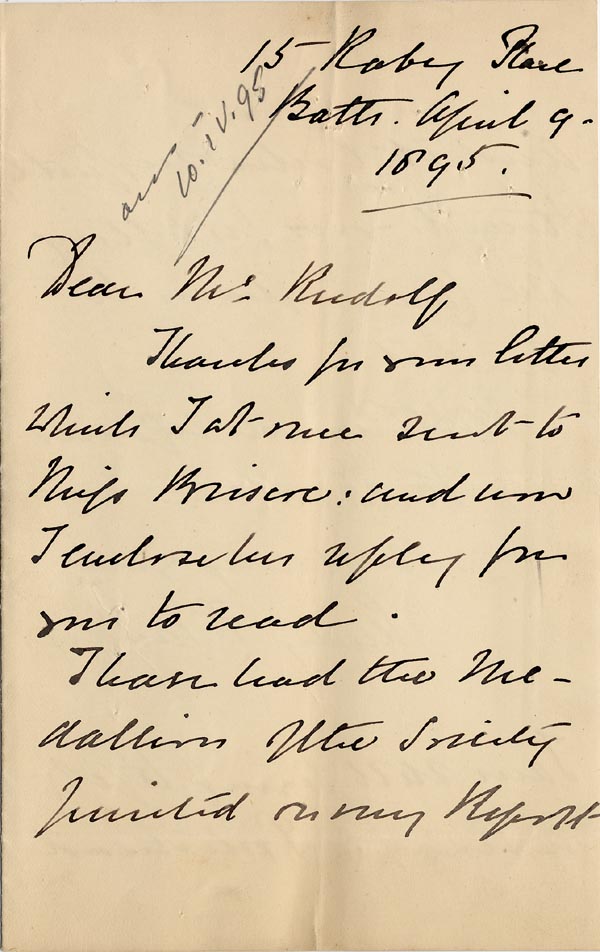 15 Raby Place
Bath. April 9-
1895.
ans
10.IV.95
Dear Mr. Rudolf
Thanks for your letter
which I at once sent to
Miss Briscoe: and now
I enclose her reply for
you to read.
I have had the Me-
dallion of the Society
printed on my Report